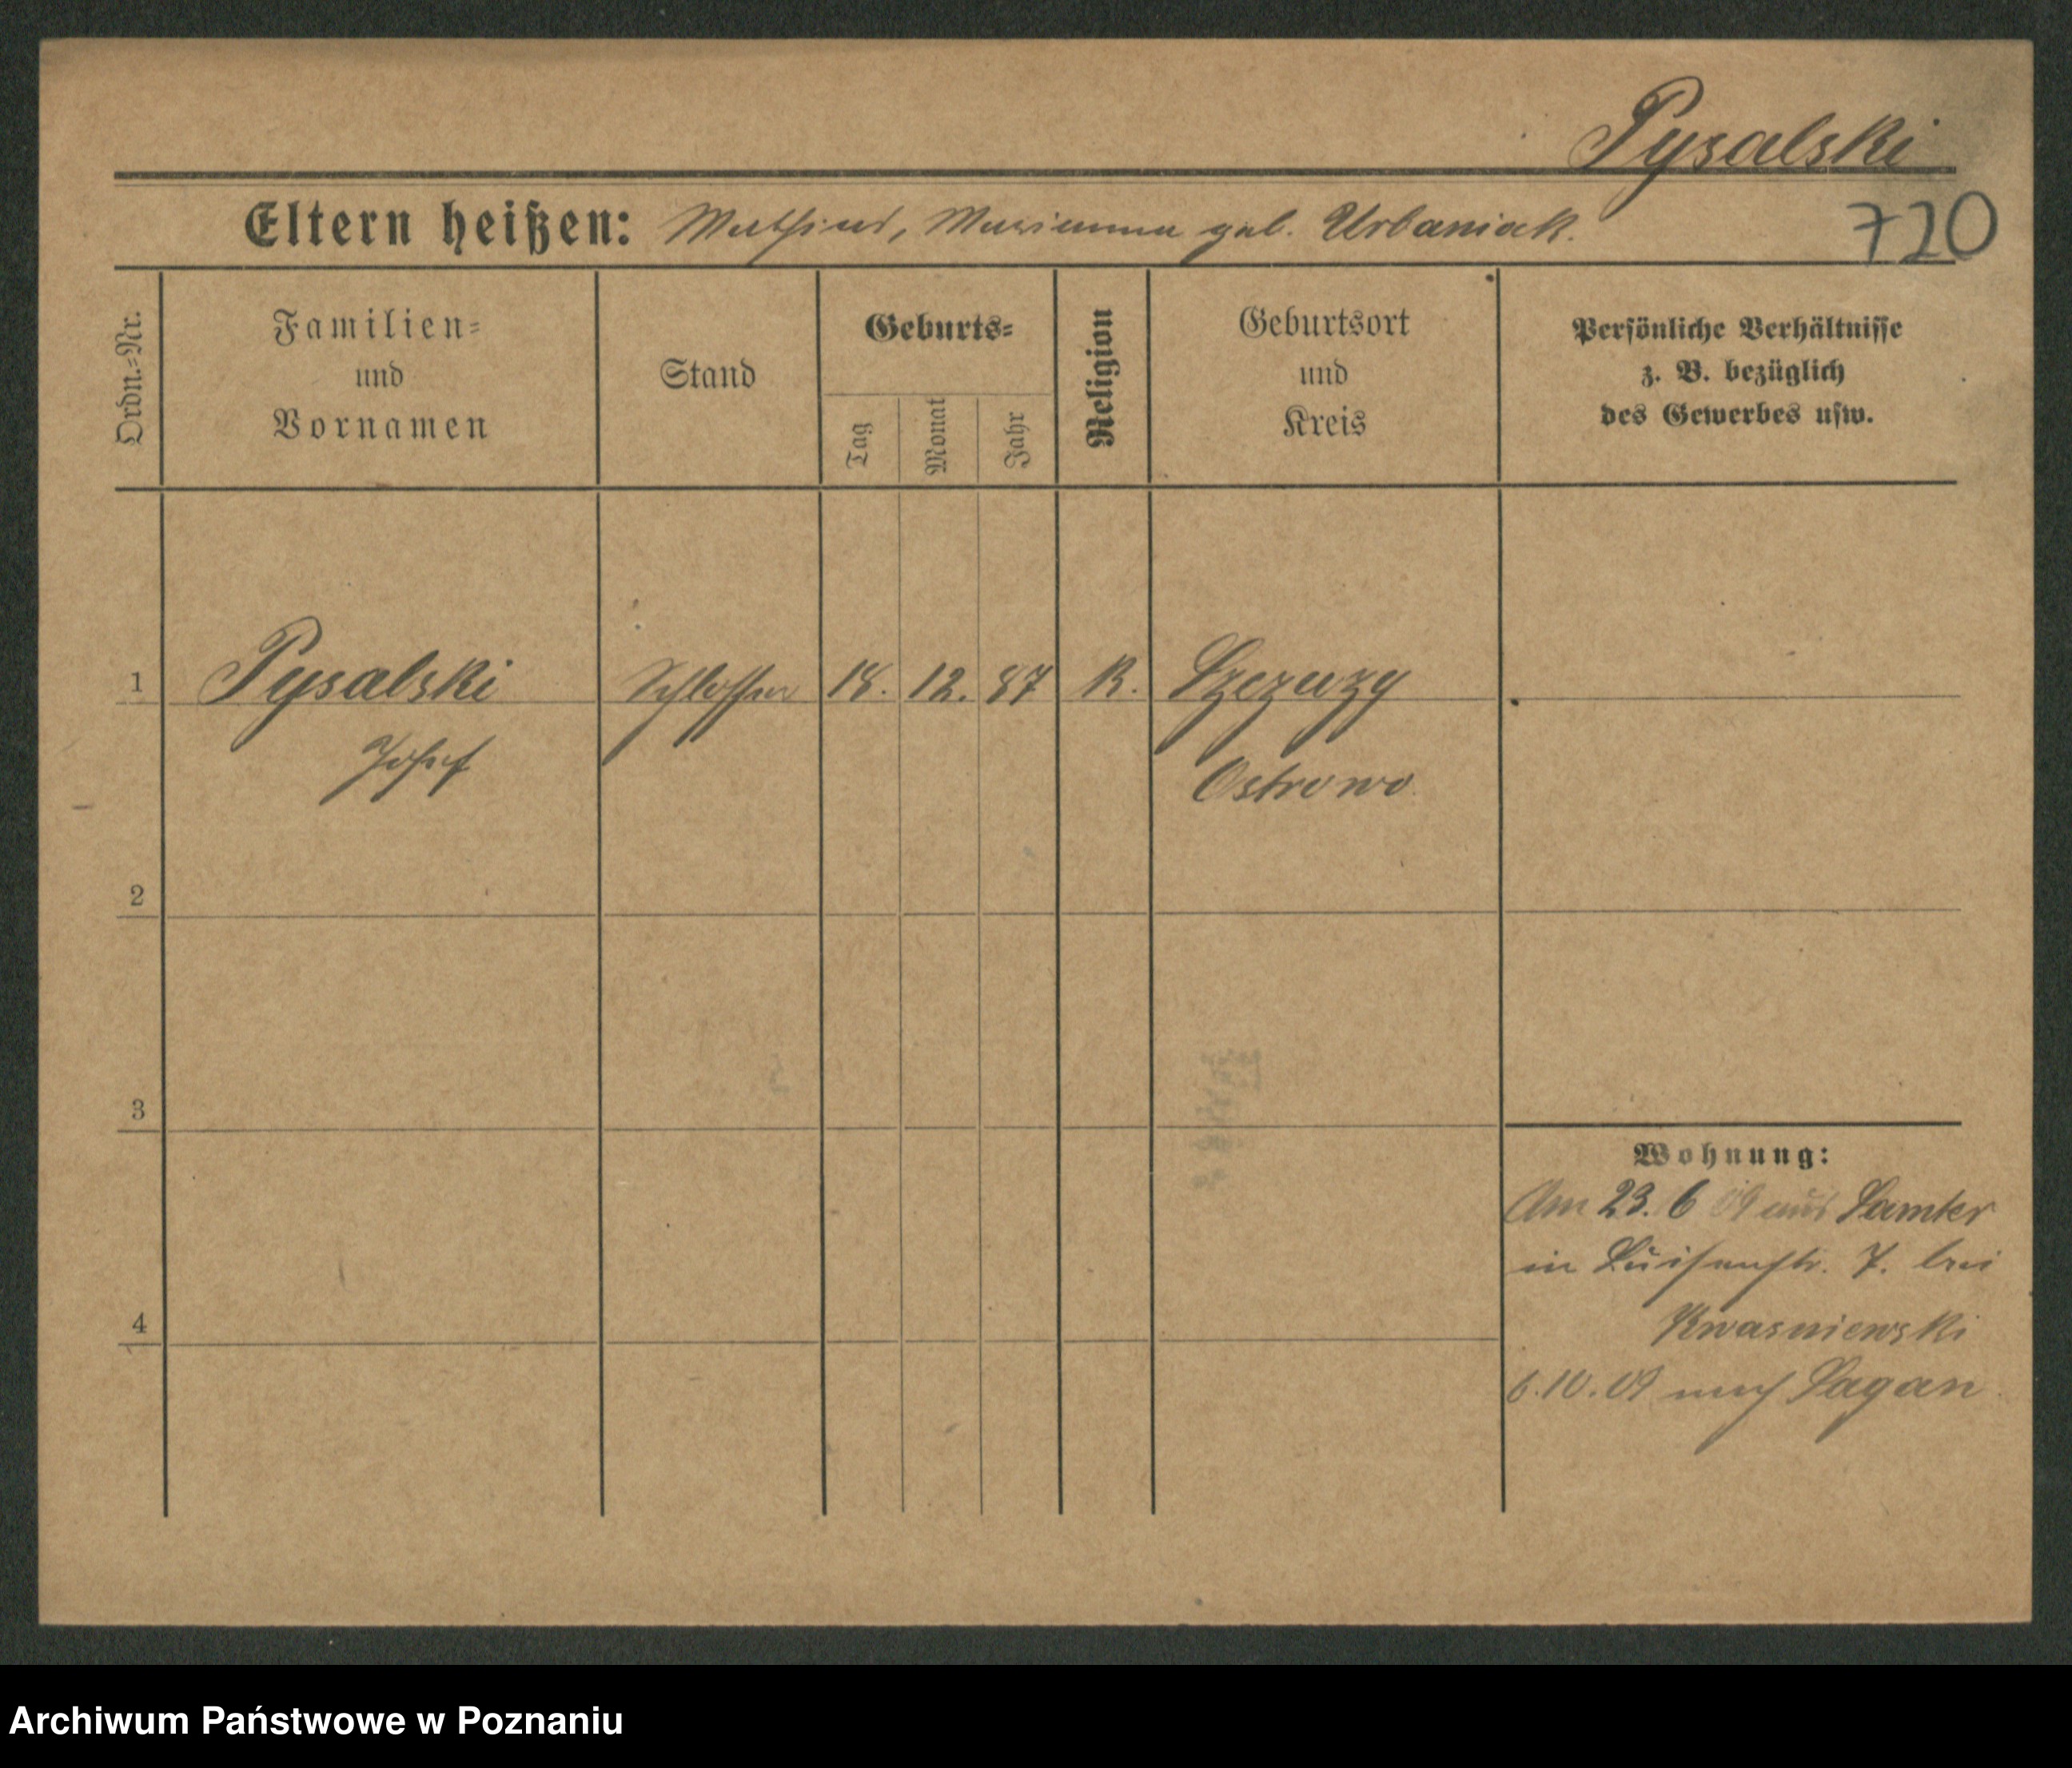 Pysalski
Eltern heißen: Mathias, Marianna geb. Urbaniak.
720
Ordn.=Nr.
Familien=
und
Vornamen
Stand
Geburts=
Tag
Monat
Jahr
Religion
Geburtsort
und
Kreis
Persönliche Verhältnisse
z. B. bezüglich
des Gewerbes usw.
1 Pysalski Schlosser 18. 12. 87 K.
Josef Ostrowo
2
3
4
Wohnung:
Am 23. 6 09 aus Samter
in Luisenstr. 7. bei
Kwasniewski
6.10.09 nach Sagan
Archiwum Państwowe w Poznaniu